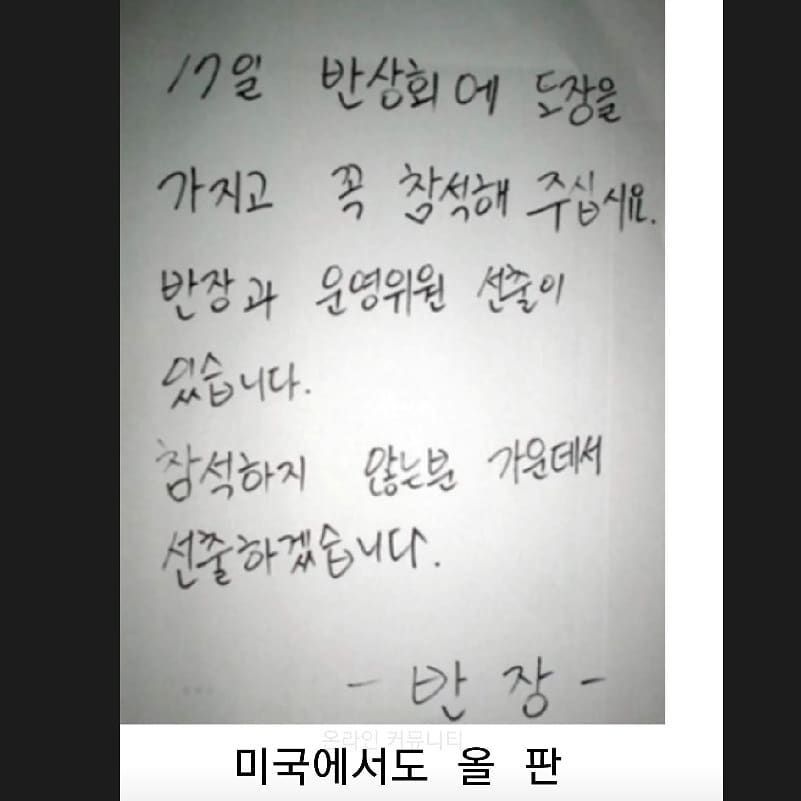 17일 반상회에 도장을
가지고 꼭 참석해 주십시요.
반장과 운영위원 선출이
있습니다.
참석하지 않는분 가운데서
선출하겠습니다.
- 반장 -
온라인 커뮤니티
미국에서도 올 판